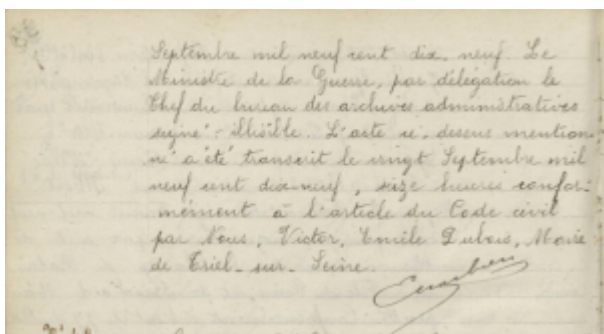 Septembre mil neuf cent dix-neuf. Le
Ministre de la Guerre, par délégation le
Chef du bureau des archives administratives
signé - illisible. L'acte ci-dessus mention-
né a été transcrit le vingt Septembre mil
neuf cent dix-neuf, seize heures confor-
mément à l'article du Code civil
par Nous, Victor, Emile Dubois, Maire
de Triel-sur-Seine.